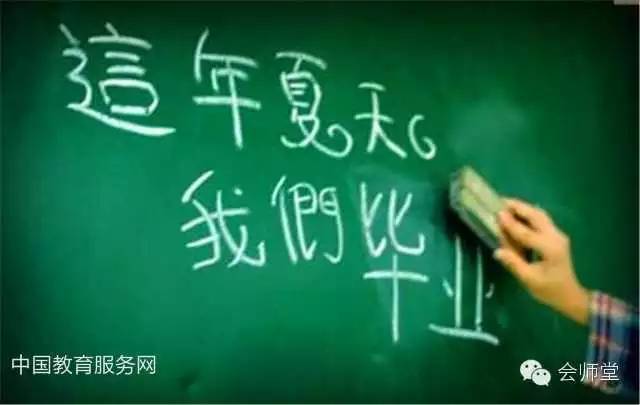 這年夏天。
我們毕业
中国教育服务网
会师堂